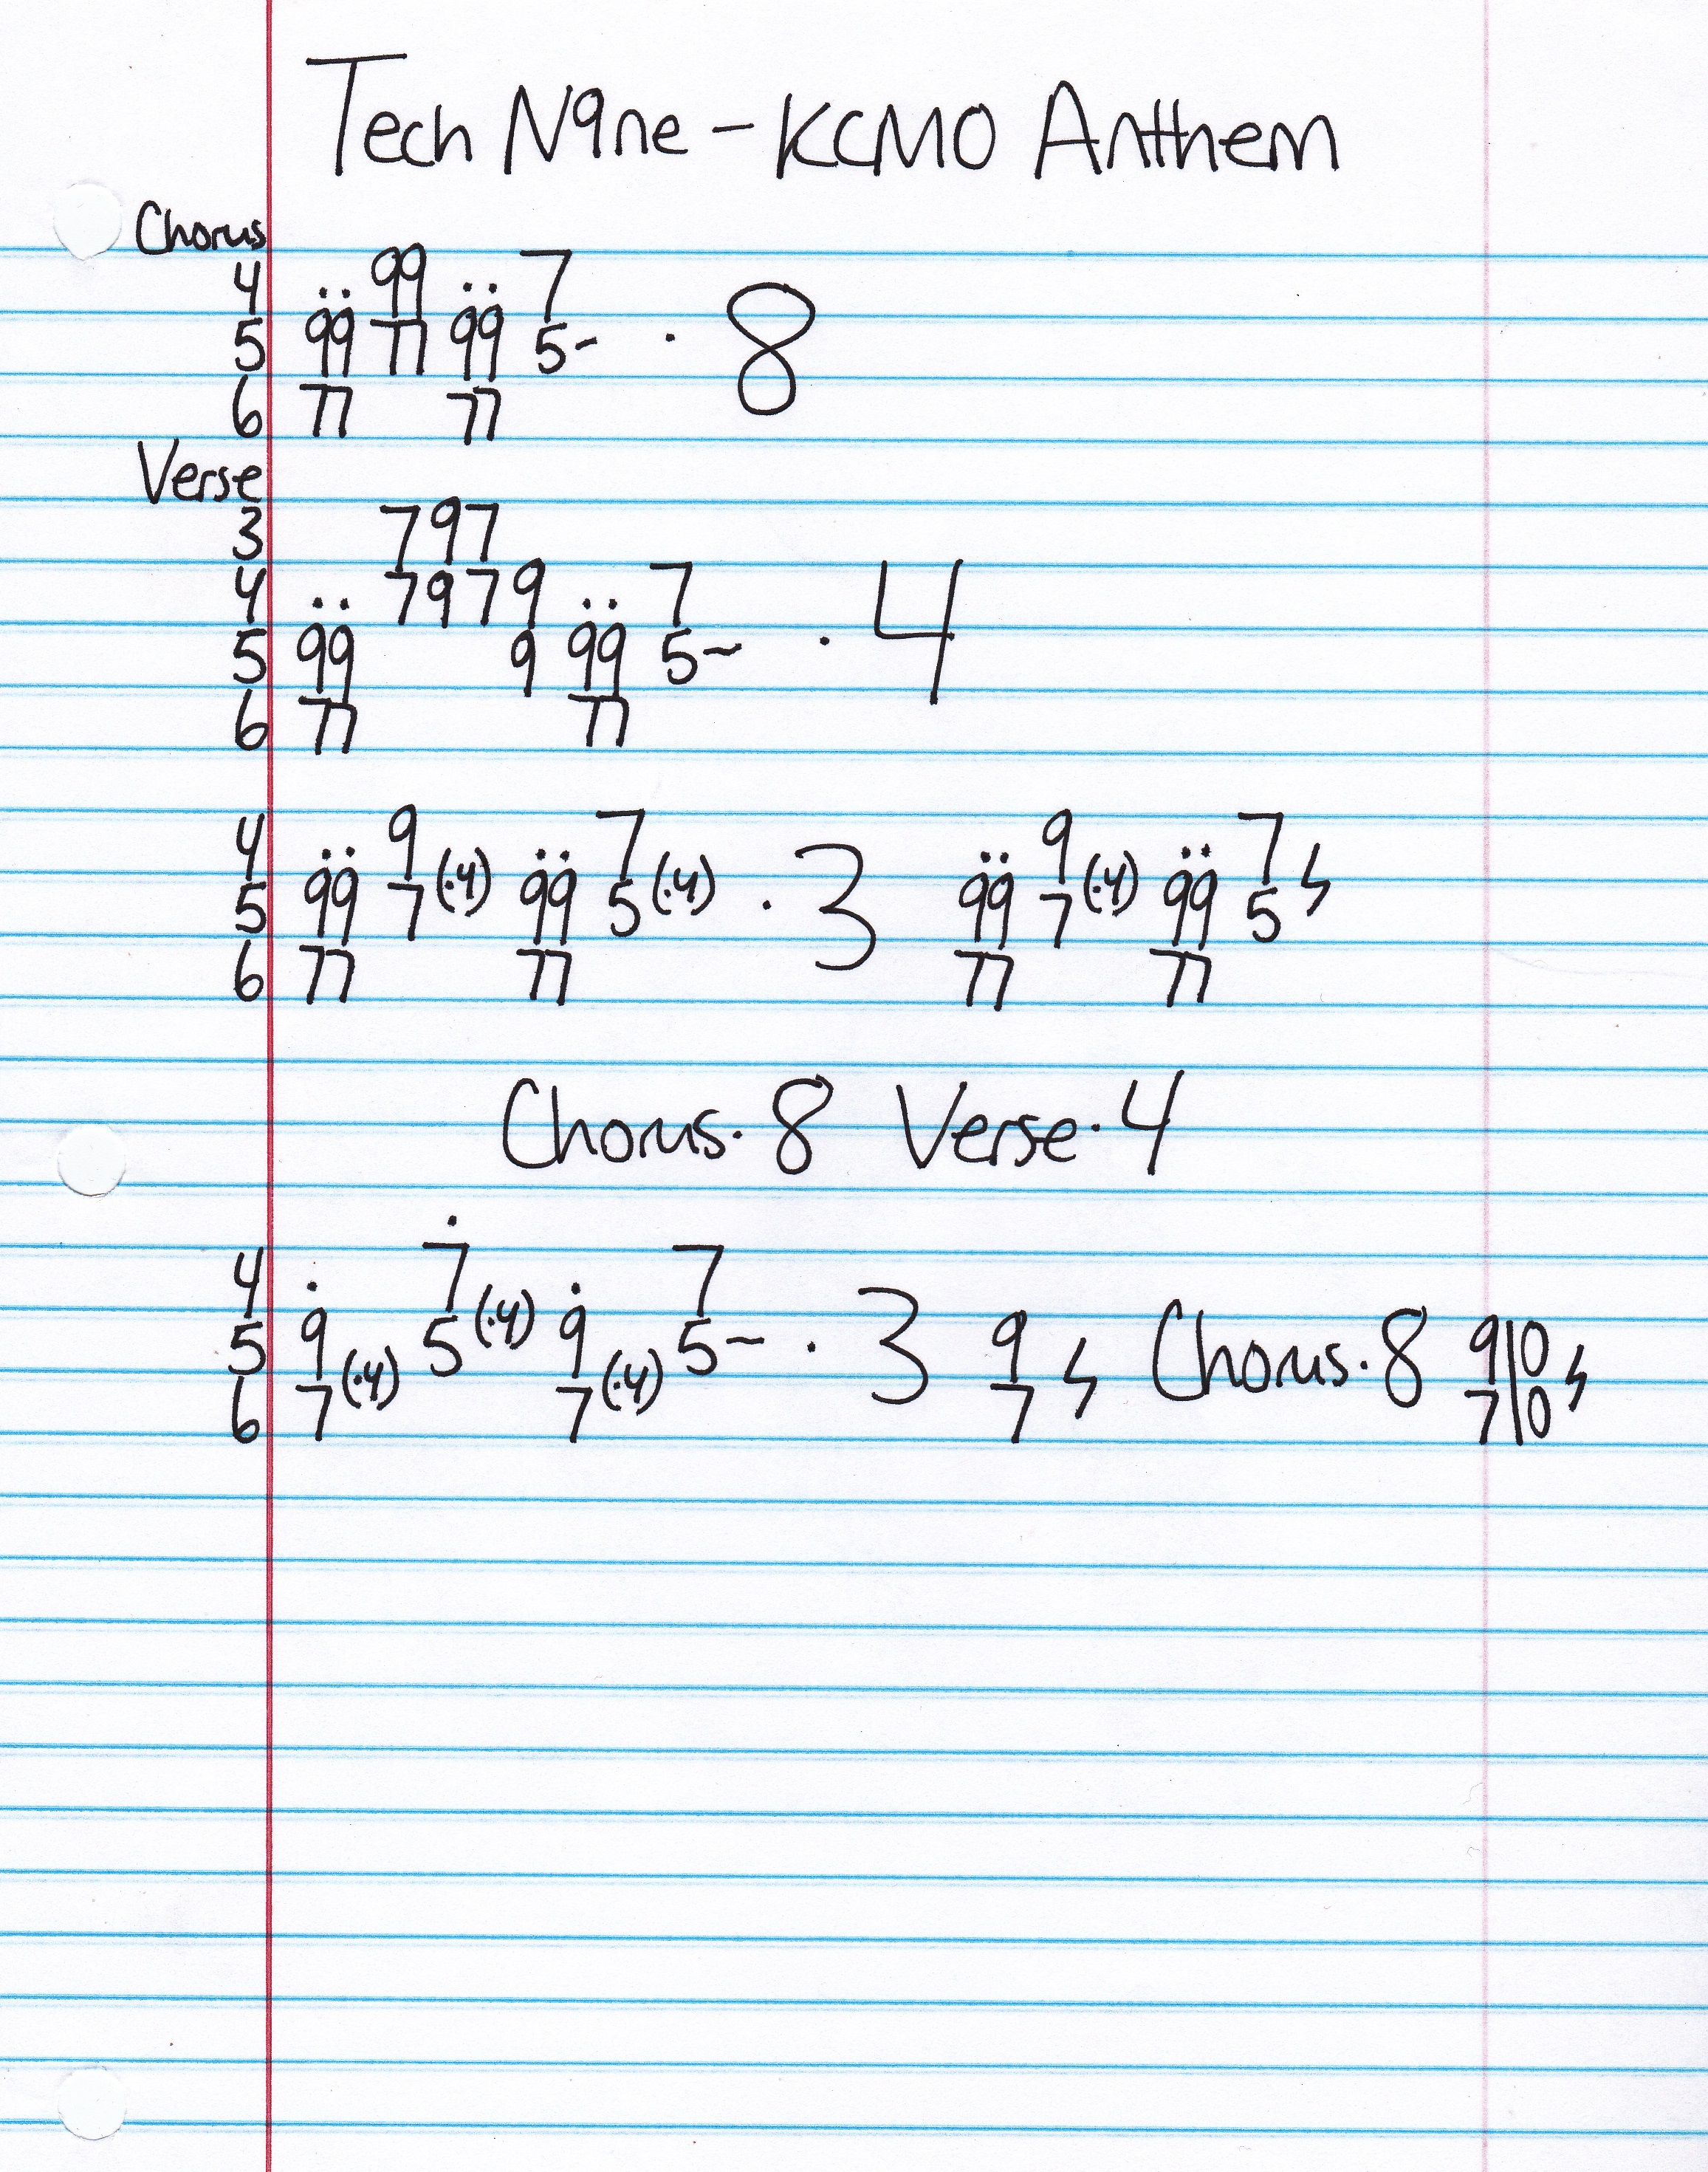 Tech N9ne - KCMO Anthem
Chorus
4 .. 99 .. 7
5 99 77 99 5~ · 8
6 77 77
Verse
3 797
4 .. 7979 .. 7
5 99 9 99 5~ · 4
6 77 77
4 .. 9 .. 7 .. 9 .. 7
5 99 7(·4) 99 5(·4) · 3 99 7(·4) 99 5 ϟ
6 77 77 77 77
Chorus·8 Verse·4
4 · 7̇ · 7
5 9 5(·4) 9 5~ · 3 9 ϟ Chorus·8 9|0 ϟ
6 7(·4) 7(·4) 7 7|0